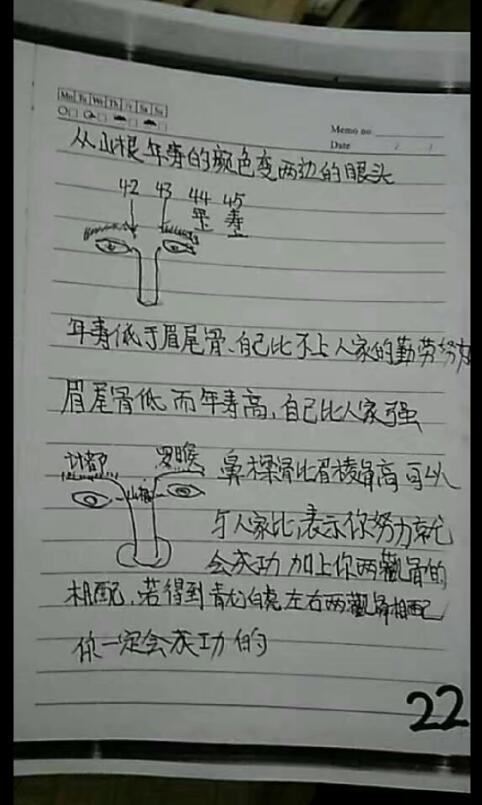 Mo Tu We Th Fr Sa Su
Memo no.
Date / /
从山根年寿的颜色变两边的眼头
42 43 44 45
年 寿
上 上
年寿低于眉尾骨、自己比不上人家的勤劳努力
眉尾骨低而年寿高,自己比人家强
计都 罗睺 鼻梁骨比眉棱骨高可以
山根
与人家比,表示你努力就
会成功 加上你两颧骨的
相配,若得到青龙白虎左右两颧骨相配
你一定会成功的
22